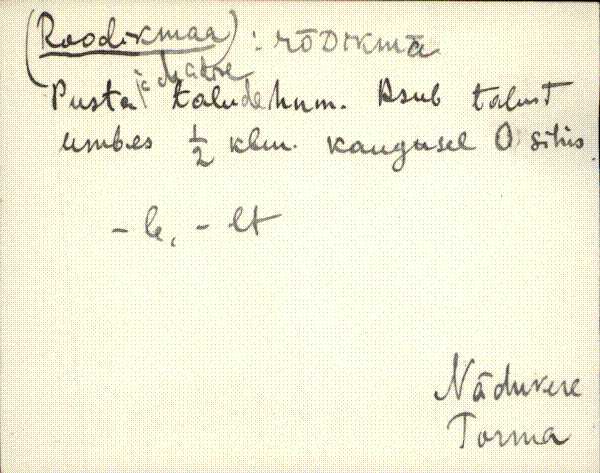 (Roodikmaa) : rōDIKmā
Pusta ja Matise talude hum. Asub talust
umbes ½ klm. kaugusel O sihis.
- le, - lt
Nāduvere
Torma